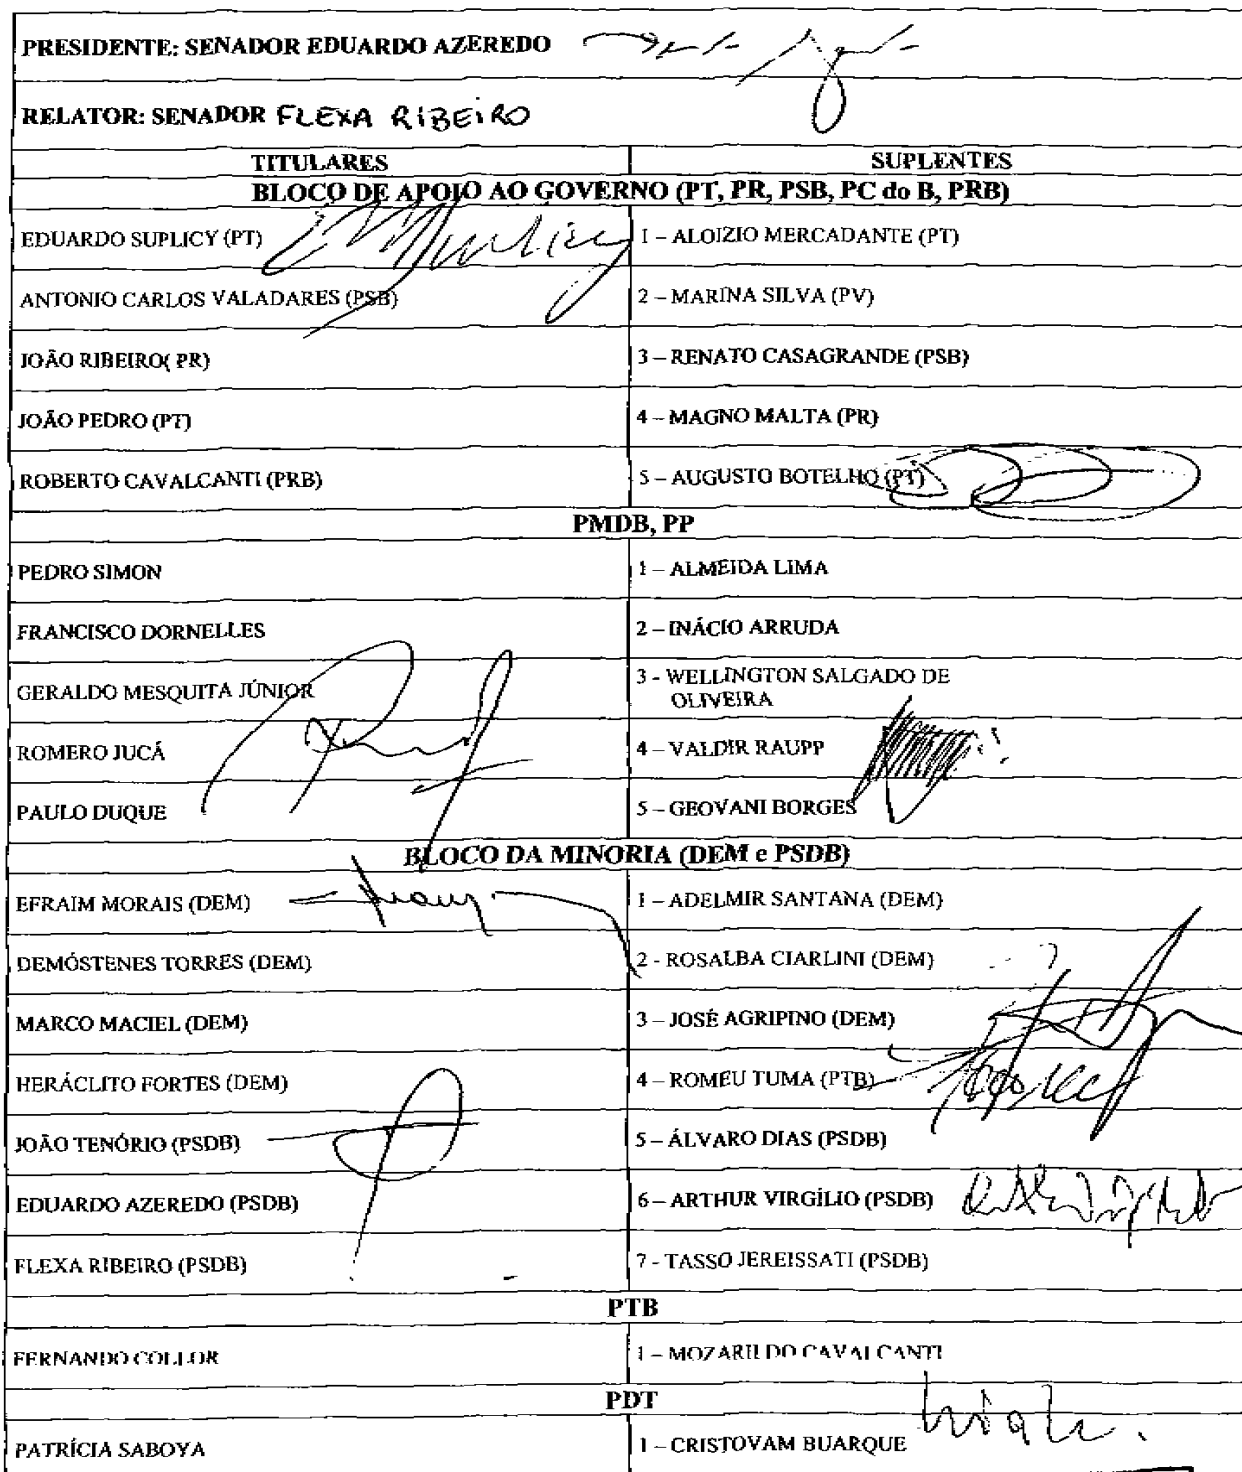 PRESIDENTE: SENADOR EDUARDO AZEREDO
RELATOR: SENADOR FLEXA RIBEIRO
TITULARES SUPLENTES
BLOCO DE APOIO AO GOVERNO (PT, PR, PSB, PC do B, PRB)
EDUARDO SUPLICY (PT) 1 – ALOIZIO MERCADANTE (PT)
ANTONIO CARLOS VALADARES (PSB) 2 – MARINA SILVA (PV)
JOÃO RIBEIRO( PR) 3 – RENATO CASAGRANDE (PSB)
JOÃO PEDRO (PT) 4 – MAGNO MALTA (PR)
ROBERTO CAVALCANTI (PRB) 5 – AUGUSTO BOTELHO (PT)
PMDB, PP
PEDRO SIMON 1 – ALMEIDA LIMA
FRANCISCO DORNELLES 2 – INÁCIO ARRUDA
GERALDO MESQUITA JÚNIOR 3 - WELLINGTON SALGADO DE
OLIVEIRA
ROMERO JUCÁ 4 – VALDIR RAUPP
PAULO DUQUE 5 – GEOVANI BORGES
BLOCO DA MINORIA (DEM e PSDB)
EFRAIM MORAIS (DEM) 1 – ADELMIR SANTANA (DEM)
DEMÓSTENES TORRES (DEM) 2 - ROSALBA CIARLINI (DEM)
MARCO MACIEL (DEM) 3 – JOSÉ AGRIPINO (DEM)
HERÁCLITO FORTES (DEM) 4 – ROMEU TUMA (PTB)
JOÃO TENÓRIO (PSDB) 5 – ÁLVARO DIAS (PSDB)
EDUARDO AZEREDO (PSDB) 6 – ARTHUR VIRGÍLIO (PSDB)
FLEXA RIBEIRO (PSDB) 7 - TASSO JEREISSATI (PSDB)
PTB
FERNANDO COLLOR 1 – MOZARILDO CAVALCANTI
PDT
PATRÍCIA SABOYA 1 – CRISTOVAM BUARQUE